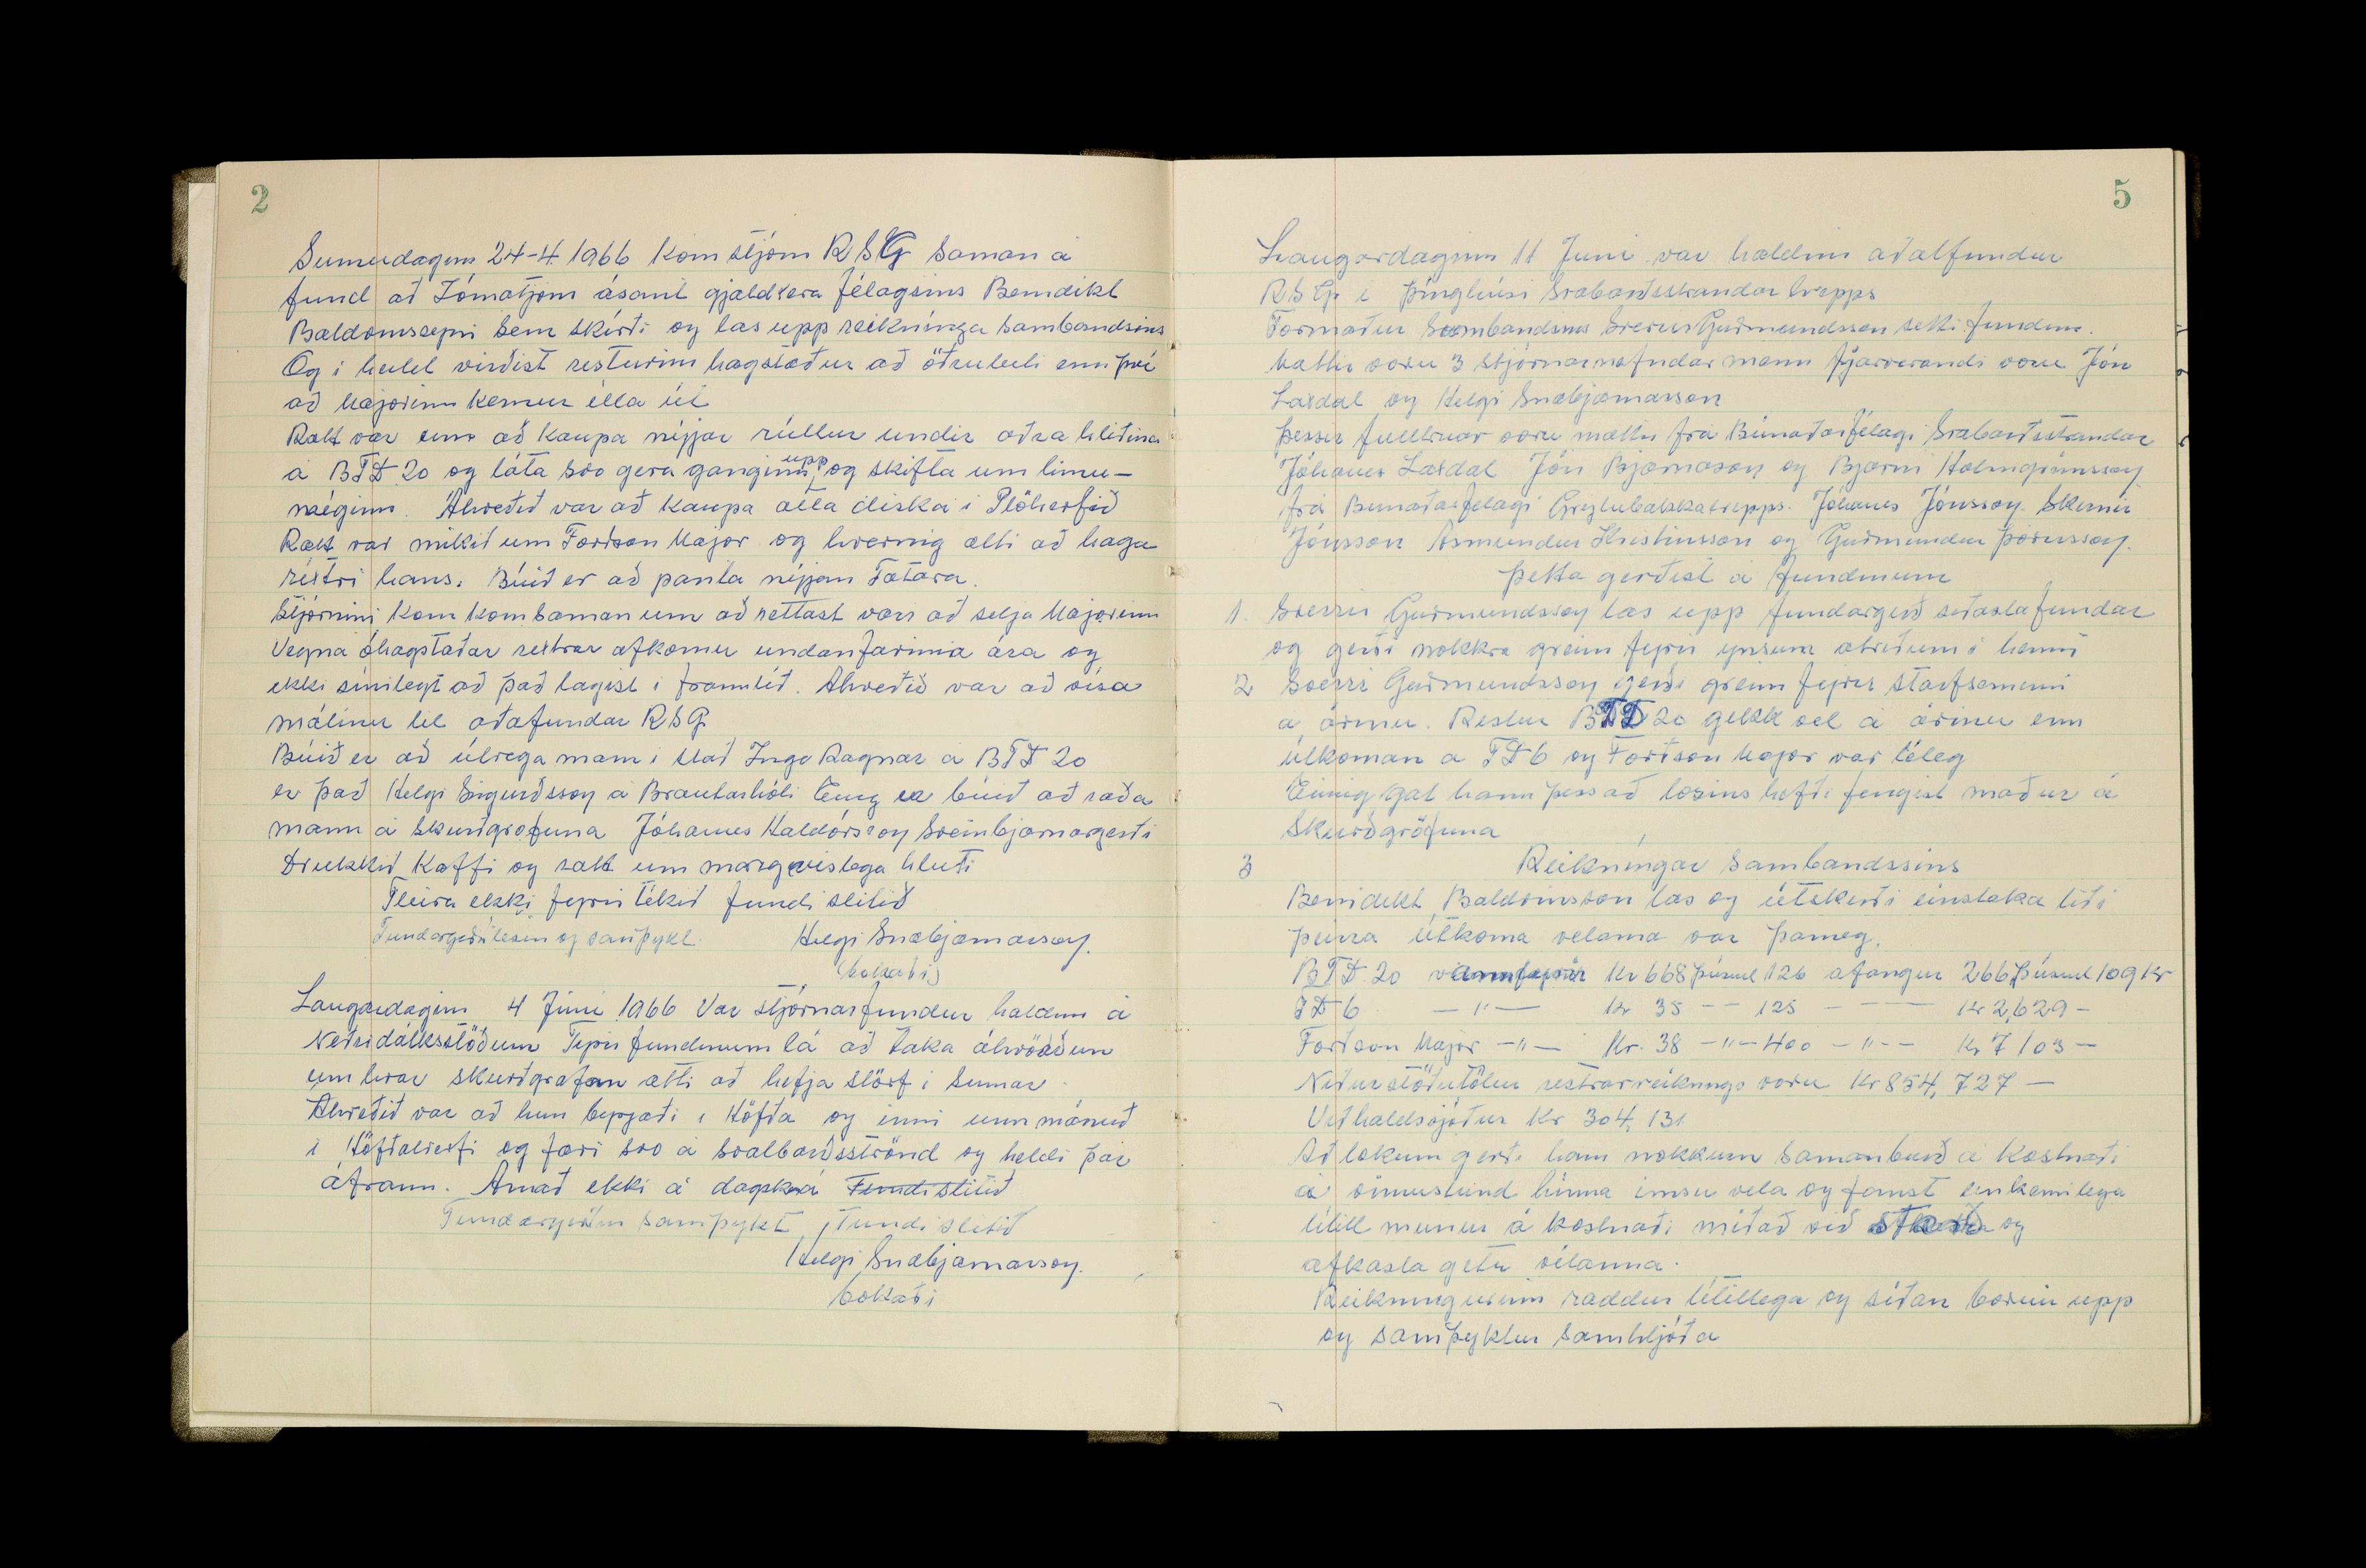 2
Sunnudaginn 24-4. 1966 kom stjórn RSG Saman á
fund að Tómatjörn ásamt gjaldkera félagsins Benidikt
Baldvinssyni Sem skírði og las upp reikninga Sambandsins
Og i heild virðist resturinn hagstæður að öðruleiti enn því
að Majorinn kemur illa út
Rætt var um að kaupa nýjar rúllur undir aðra hliðina
á BTD 20 og láta svo gera ganginn upp og skifta um limi-
náginn. Ákveðið var að kaupa átta diska i Plöherfið
Rætt var mikið um Fordson Major og hvernig ætti að haga
réstri hans. Búið er að panta nýjan Tætara.
Stjórnini kom kom saman um að réttast væri að selja Majorinn
Vegna óhagstæðar restrar afkomu undanfarinna ára og
ekki sinilegt að það lagist i framtíð. Ákveðið var að vísa
málinu til aðafundar RSG
Búið er að útvega mann i stað Inga Ragnar á BTD 20
er það Helgi Sigurðsson á Brautarhóli Einig er búið að raða
mann á Skurðgrofuna Jóhannes Haldórsson Sveinbjarnargerði
Drukkið Kaffi og rætt um margvislega hluti
Fleira ekki fyrir tékið fundi slitið
Fundargerð lesin og samþykt. Helgi Snæbjarnarson.
(bokaði)
Laugardaginn 4 Júni 1966 Var stjórnarfundur haldinn á
Neðridálksstöðum Fyrir fundinum lá að taka ákvöðun
um hvar skurðgrafan ætti að hefja störf i Sumar
Ákveðið var að hun byrjaði i Höfða og inni umm mánuð
i Höfðahverfi og færi svo á Svalbarðsströnd og heldi þar
áfram. Annað ekki á dagskrá Fundi slitið
Fundargerðin samþykt, fundi slitið
Helgi Snæbjarnarson.
bokaði
5
Laugardaginn 11 Juni var haldinn aðalfundur
RSG i þinghúsi Svalbarðsstrandar hrepps
Formaður Sambandsins Sverrir Guðmundsson setti fundinn.
Mættir voru 3 stjórnarnefndar menn fjarverandi voru Jón
Laxdal og Helgi Snæbjarnarson
þessir fulltruar voru mættir frá Búnaðarfélagi Svalbarðsstrandar
Jóhannes Laxdal Jón Bjarnason og Bjarni Holmgrimsson
frá Bunaðarfelagi Grýtubakkahrepps. Jóhannes Jónsson. Skirnir
Jónsson Asmundur Kristinsson og Guðmundur þórisson.
þetta gerðist á fundinum
1. Sverrir Guðmundsson las upp fundargerð siðasta fundar
og gerði nokkra grein fyrir ymsum atriðum i henni
2 Sverrir Guðmundsson gerði grein fyrir starfseminni
a árinu. Restur BTD 20 gekk vel á árinu enn
útkoman a TD 6 og Fordson Major var léleg
Einnig gat hann þess að loksins hefði fengist maður á
Skurðgröfuna
3 Reikningar Sambandssins
Benidikt Baldvinsson las og útskirði einstaka liði
þeirra útkoma velanna var þannig.
BTD 20 vann fyrir Kr 668 þúsund 126 afangur 266 þúsund 109 kr
TD 6 -"- Kr 35 -- 125 - -- Kr 2,629 -
Fordson Major -"- Kr. 38 -"- 400 -"-- Kr 7 103 -
Niðurstöðutölur restrarreiknings voru Kr 854, 727 -
Viðhaldssjóður Kr 304, 131
Að lokum gerði hann nokkurn Samanburð á kostnaði
á vinnustund hinna imsu vela og fanst einkennilega
litill munur á kostnaði miðað við stærð og
afkasta getu vélanna.
Reikningurinn ræddur litillega og siðan borinn upp
og samþyktur samhljóða